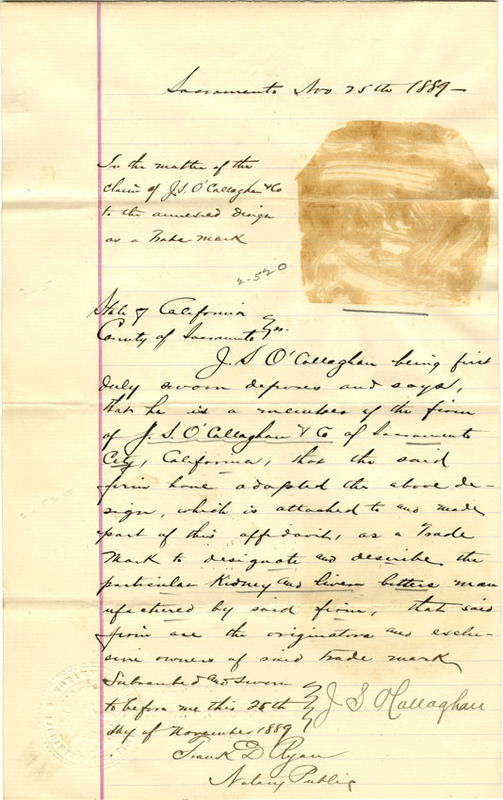 Sacramento Nov 25th 1889-
In the matter of the
claim of J. S. O'Callaghan & Co
to the annexed design
as a Trade Mark
2-520
State of California
County of Sacramento } ss.
J. S O'Callaghan being first
duly sworn deposes and says,
that he is a member of the firm
of J. S. O'Callaghan & Co of Sacramento
City, California, that the said
firm have adopted the above de-
sign, which is attached to and made
part of this affidavit, as a Trade
Mark to designate and describe the
particular Kidney and liver bitters man
ufactured by said firm, that said
firm are the originators and exclu-
sive owners of said trade mark
Subscribed and sworn
to before me this 25th
day of November 1889
J S O'Callaghan
Frank D Ryan
Notary Public